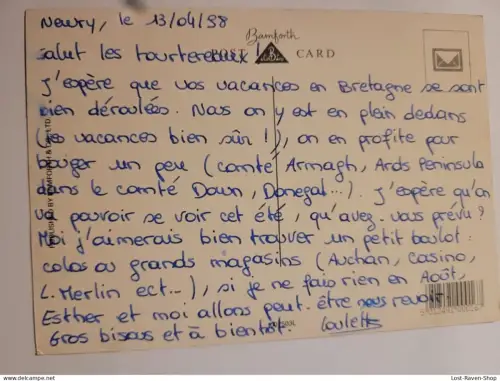 Newry, le 13/04/98
Bamforth
POST CARD
Salut les tourtereaux !
J'espère que vos vacances en Bretagne se sont
bien déroulées. Nous on y est en plein dedans
(les vacances bien sûr !), on en profite pour
bouger un peu (comté Armagh, Ards Peninsula
dans le comté Down, Donegal...). J'espère qu'on
va pouvoir se voir cet été, qu'avez-vous prévu ?
Moi j'aimerais bien trouver un petit boulot :
colos ou grands magasins (Auchan, Casino,
L. Merlin ect...), si je ne fais rien en Août,
Esther et moi allons peut-être vous revoir.
Gros bisous et à bientôt.
Lost-Raven-Shop
Lost-Raven-Shop